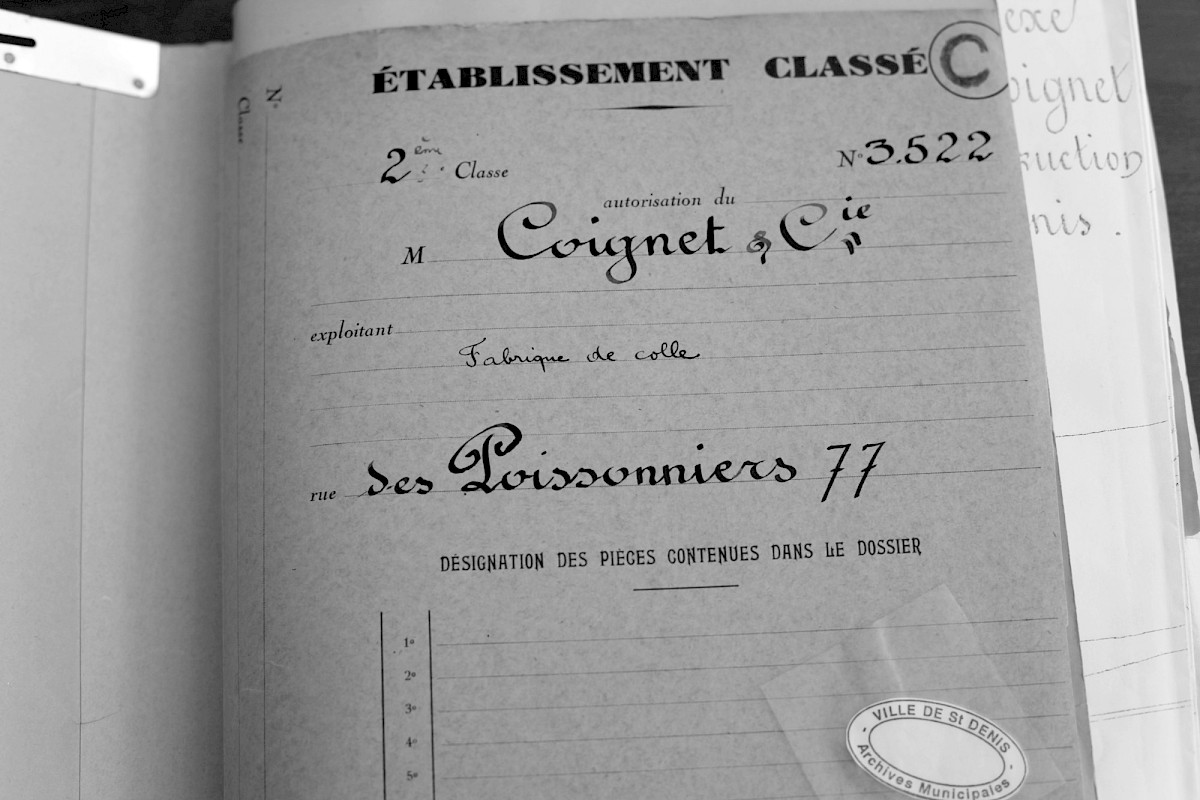 ÉTABLISSEMENT CLASSÉ C
N°
Classe
2ème Classe
N° 3.522
autorisation du
M Coignet & Cie
exploitant
Fabrique de colle
rue des Poissonniers 77
DÉSIGNATION DES PIÈCES CONTENUES DANS LE DOSSIER
1°
2°
3°
4°
5°
VILLE DE St DENIS
Archives Municipales
exe
oignet
ruction
nis.